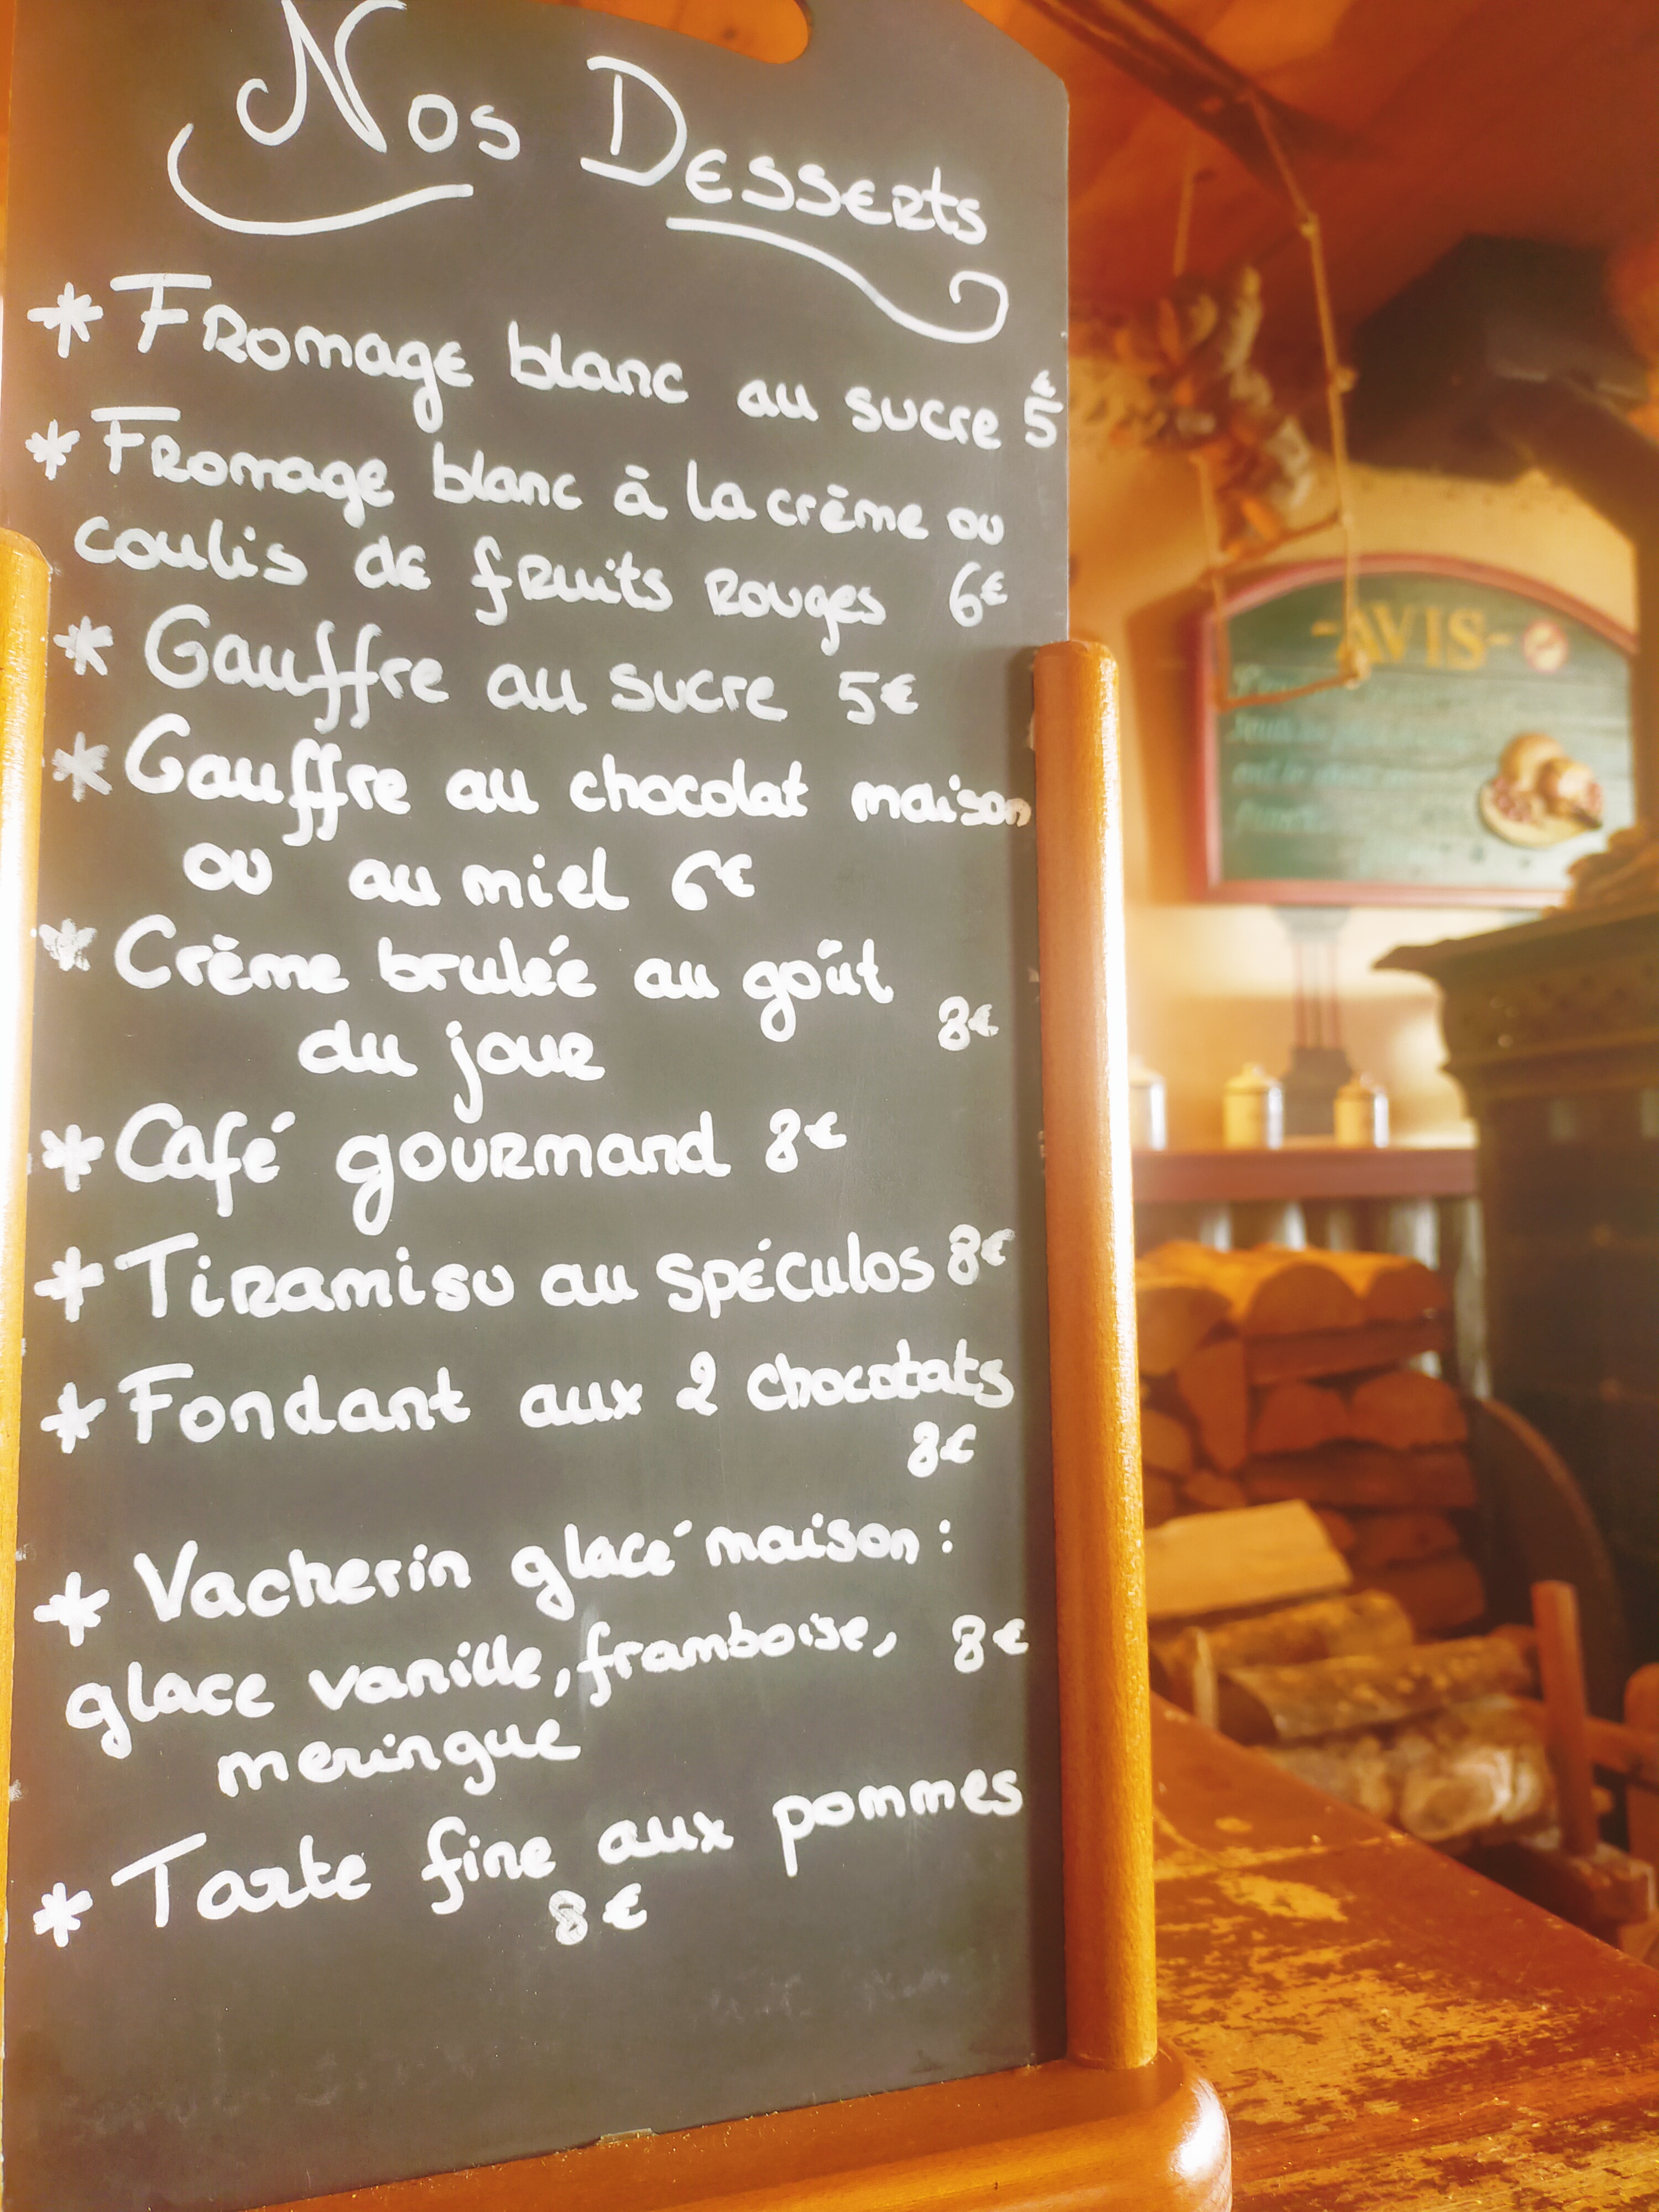 Nos Desserts
* Fromage blanc au sucre 5€
* Fromage blanc à la crème ou
coulis de fruits rouges 6€
* Gauffre au sucre 5€
* Gauffre au chocolat maison
ou au miel 6€
* Crème brulée au goût
du jour 8€
* Café gourmand 8€
* Tiramisu au spéculos 8€
* Fondant aux 2 chocolats
8€
* Vacherin glacé maison :
glace vanille, framboise, 8€
meringue
* Tarte fine aux pommes
8€
-AVIS-